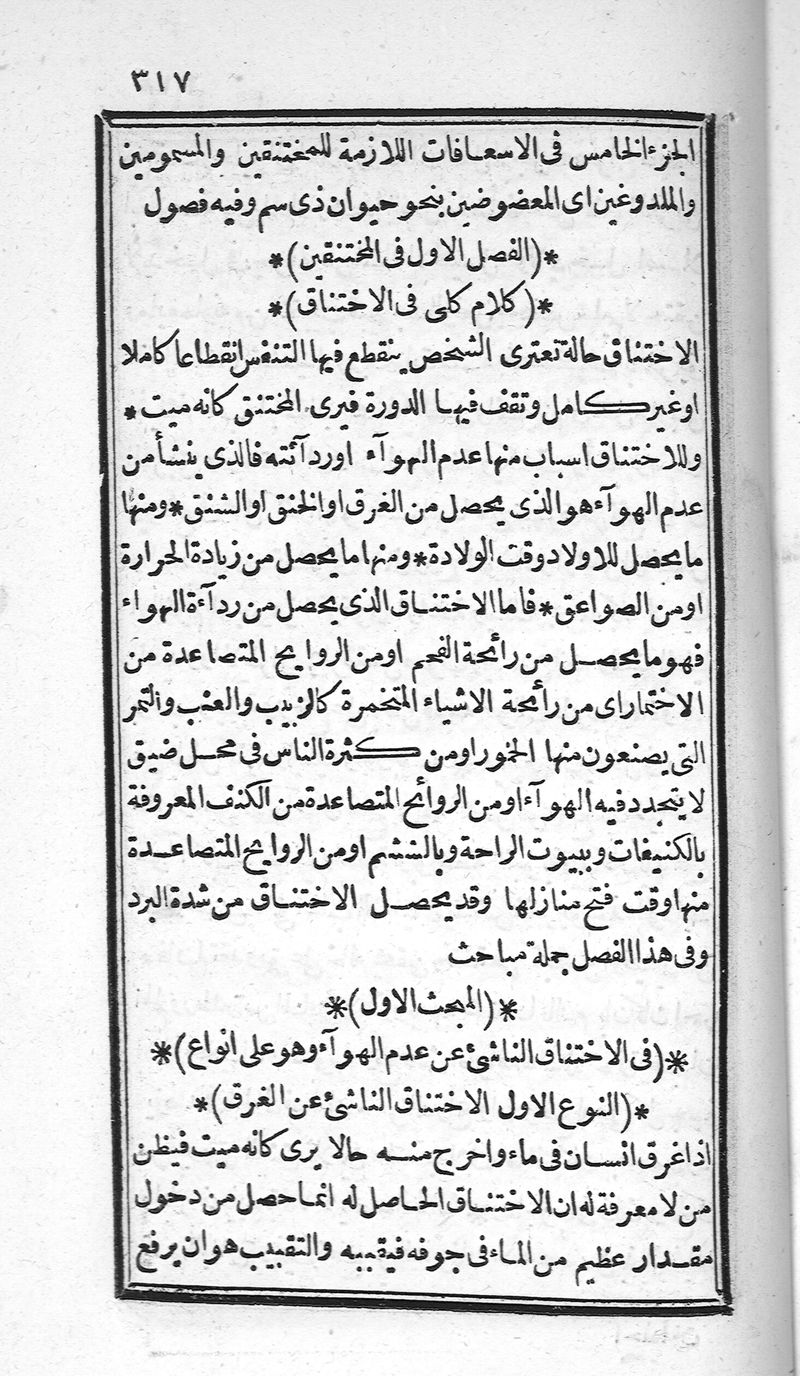 ٣١٧
الجزء الخامس فى الاسعافات اللازمة للمختنقين والمسمومين
والملدوغين اى المعضوضين بنحو حيوان ذى سم وفيه فصول
*(الفصل الاول فى المختنقين)*
*(كلام كلى فى الاختناق)*
الاختناق حالة تعترى الشخص ينقطع فيها التنفس انقطاعا كاملا
او غير كامل وتقف فيها الدورة فيرى المختنق كانه ميت *
وللاختناق اسباب منها عدم الهوآء اوردآئته فالذى ينشأ من
عدم الهوآء هو الذى يحصل من الغرق او الخنق او الشنق * ومنها
ما يحصل للاولاد وقت الولادة * ومنها ما يحصل من زيادة الحرارة
او من الصواعق * فاما الاختناق الذى يحصل من ردآءة الهواء
فهو ما يحصل من رائحة الفحم او من الروايح المتصاعدة من
الاختمار اى من رائحة الاشياء المتخمرة كالزبيب والعنب والتمر
التى يصنعون منها الخمور او من كثرة الناس فى محل ضيق
لا يتجدد فيه الهوآء او من الروائح المتصاعدة من الكنف المعروفة
بالكنيفات وبيوت الراحة وبالششم او من الروايح المتصاعدة
منها وقت فتح منازلها وقد يحصل الاختناق من شدة البرد
وفى هذا الفصل جملة مباحث
*(المبحث الاول)*
*(فى الاختناق الناشئ عن عدم الهوآء وهو على انواع)*
*(النوع الاول الاختناق الناشئ عن الغرق)*
اذا غرق انسان فى ماء واخرج منه حالا يرى كانه ميت فيظن
من لا معرفة له ان الاختناق الحاصل له انما حصل من دخول
مقدار عظيم من الماء فى جوفه فيقببه والتقبيب هو ان يرفع